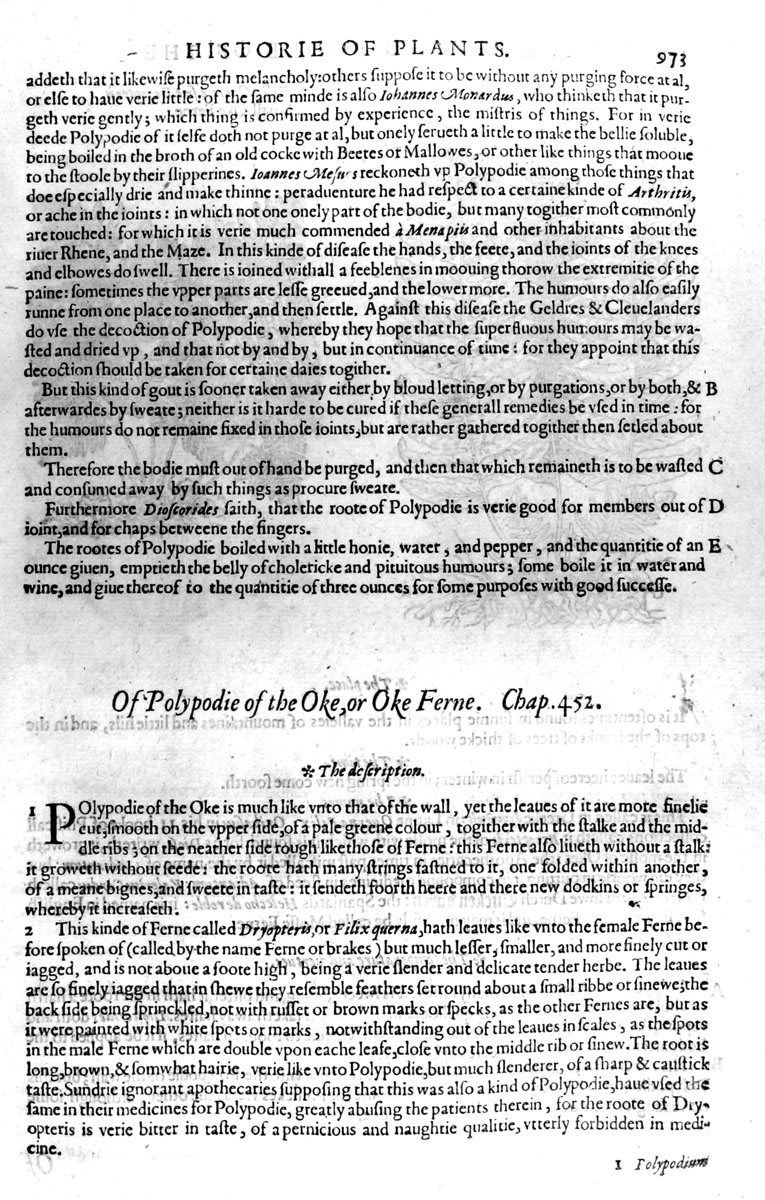 HISTORIE OF PLANTS. 973
addeth that it likewiſe purgeth melancholy: others ſuppoſe it to be without any purging force at al,
or elſe to haue verie little: of the ſame minde is alſo Iohannes Monardus, who thinketh that it pur-
geth verie gently; which thing is confirmed by experience, the miſtris of things. For in verie
deede Polypodie of it ſelfe doth not purge at al, but onely ſerueth a little to make the bellie ſoluble,
being boiled in the broth of an old cocke with Beetes or Mallowes, or other like things that mooue
to the ſtoole by their ſlipperines. Ioannes Meſues reckoneth vp Polypodie among thoſe things that
doe eſpecially drie and make thinne: peraduenture he had reſpect to a certaine kinde of Arthritis,
or ache in the ioints: in which not one onely part of the bodie, but many togither moſt commonly
are touched: for which it is verie much commended à Menapiis and other inhabitants about the
riuer Rhene, and the Maze. In this kinde of diſeaſe the hands, the feete, and the ioints of the knees
and elbowes do ſwell. There is ioined withall a feeblenes in moouing thorow the extremitie of the
paine: ſometimes the vpper parts are leſſe greeued, and the lower more. The humours do alſo eaſily
runne from one place to another, and then ſettle. Againſt this diſeaſe the Geldres & Cleuelanders
do vſe the decoction of Polypodie, whereby they hope that the ſuperfluous humours may be wa-
ſted and dried vp, and that not by and by, but in continuance of time: for they appoint that this
decoction ſhould be taken for certaine daies togither.
But this kind of gout is ſooner taken away either by bloud letting, or by purgations, or by both, & B
afterwardes by ſweate; neither is it harde to be cured if theſe generall remedies be vſed in time: for
the humours do not remaine fixed in thoſe ioints, but are rather gathered togither then ſetled about
them.
Therefore the bodie muſt out of hand be purged, and then that which remaineth is to be waſted C
and conſumed away by ſuch things as procure ſweate.
Furthermore Dioſcorides ſaith, that the roote of Polypodie is verie good for members out of D
ioint, and for chaps betweene the fingers.
The rootes of Polypodie boiled with a little honie, water, and pepper, and the quantitie of an E
ounce giuen, emptieth the belly of cholericke and pituitous humours; ſome boile it in water and
wine, and giue thereof to the quantitie of three ounces for ſome purposes with good ſucceſſe.
Of Polypodie of the Oke, or Oke Ferne. Chap. 452.
✻ The deſcription.
1 POlypodie of the Oke is much like vnto that of the wall, yet the leaues of it are more finelie
cut, ſmooth on the vpper ſide, of a pale greene colour, together with the ſtalke and the mid-
dle ribs; on the neather ſide rough like thoſe of Ferne: this Ferne alſo liueth without a ſtalk:
it groweth without ſeede: the roote hath many ſtrings faſtned to it, one folded within another,
of a meane bignes, and ſweete in taſte: it ſendeth foorth heere and there new dodkins or ſpringes,
whereby it increaſeth.
2 This kinde of Ferne called Dryopteris, or Filix querna, hath leaues like vnto the female Ferne be-
fore ſpoken of (called by the name Ferne or brakes) but much leſſer, ſmaller, and more finely cut or
iagged, and is not aboue a foote high, being a verie ſlender and delicate tender herbe. The leaues
are ſo finely iagged that in ſhewe they reſemble feathers ſet round about a ſmall ribbe or ſinewe; the
back ſide being ſprinckled, not with ruſſet or brown marks or ſpecks, as the other Fernes are, but as
it were painted with white ſpots or marks, notwithſtanding out of the leaues in ſcales, as the ſpots
in the male Ferne which are double vpon eache leafe, cloſe vnto the middle rib or ſinew. The root is
long, brown, & ſomwhat hairie, verie like vnto Polypodie, but much ſlenderer, of a ſharp & cauſtick
taſte. Sundrie ignorant apothecaries ſuppoſing that this was alſo a kind of Polypodie, haue vſed the
ſame in their medicines for Polypodie, greatly abuſing the patients therein, for the roote of Dry-
opteris is verie bitter in taſte, of a pernicious and naughtie qualitie, vtterly forbidden in medi-
cine.
1 Polypodium